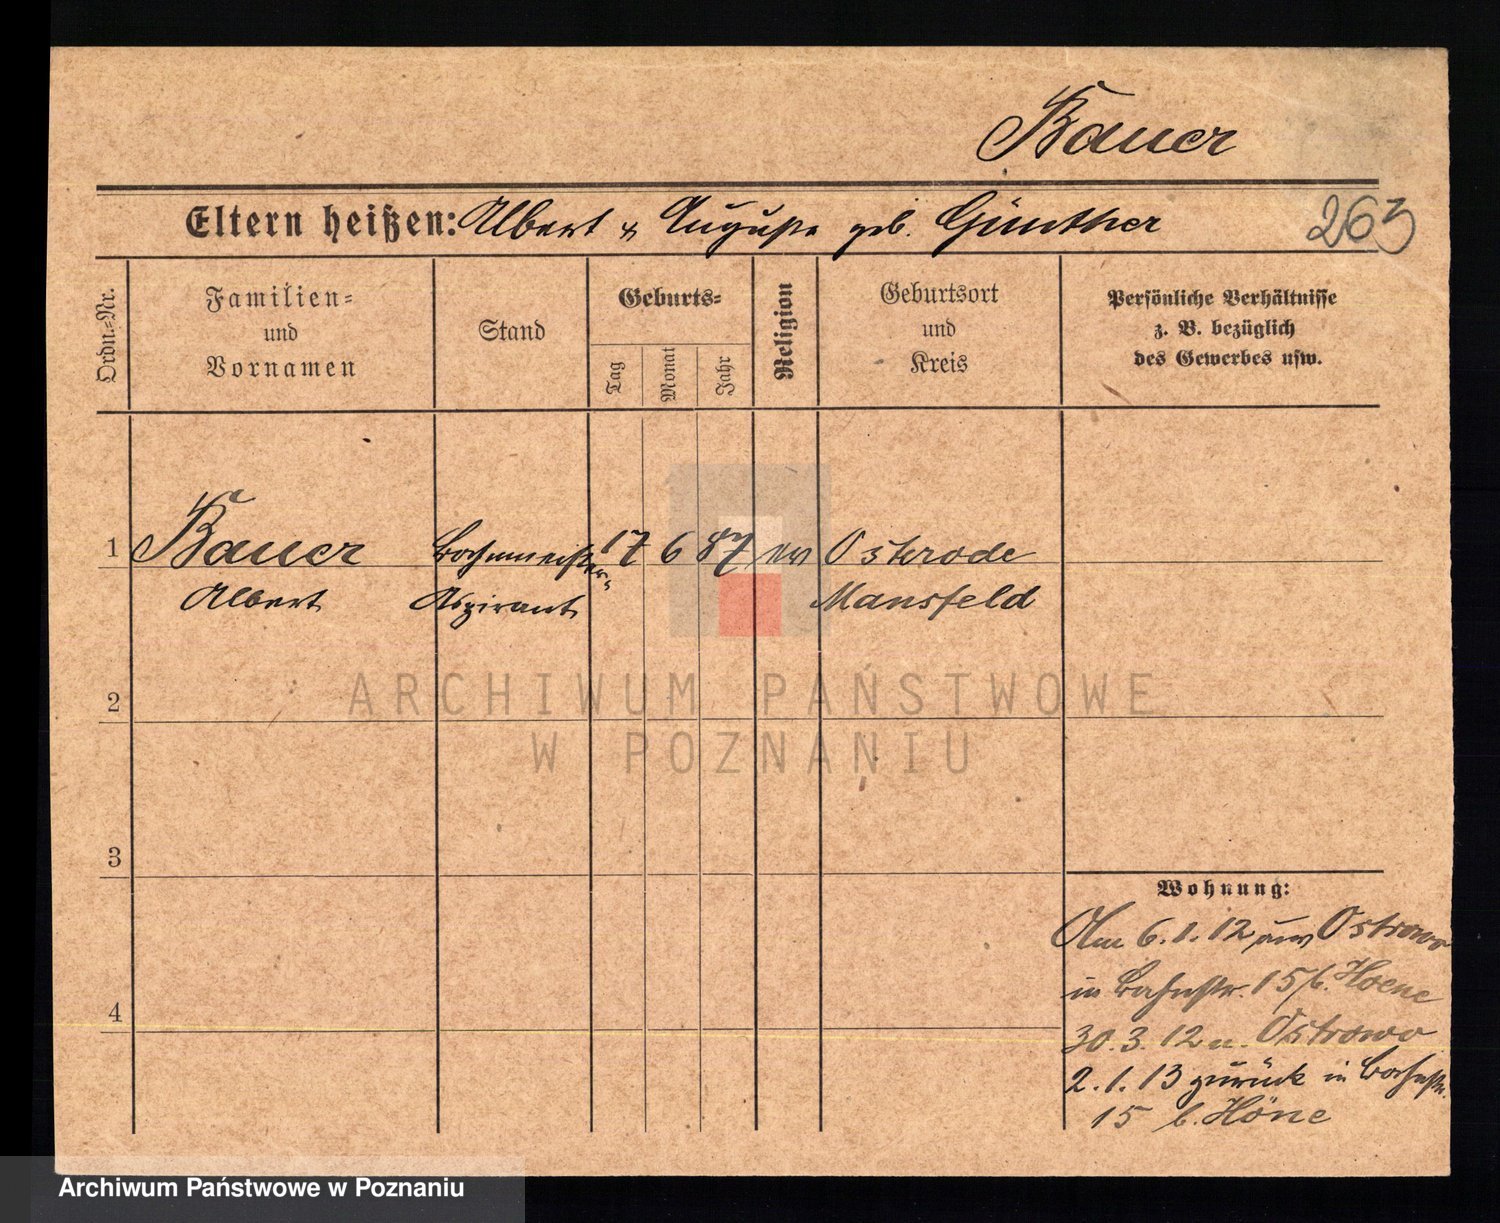 Bauer
Eltern heißen: Albert u Auguste geb. Günther
263
Ordn.-Nr.
Familien-
und
Vornamen
Stand
Geburts-
Tag
Monat
Jahr
Religion
Geburtsort
und
Kreis
Persönliche Verhältnisse
z. B. bezüglich
des Gewerbes usw.
1 Bauer Bahnmeister- 17 6 87 ev Osterode
Albert Aspirant Mansfeld
ARCHIWUM PAŃSTWOWE
W POZNANIU
2
3
4
Wohnung:
Am 6.1.12 aus Ostrowo
in Bahnstr. 15 b. Hoene
30.3.12 n. Ostrowo
2.1.13 zurück in Bahnstr.
15 b. Höne
Archiwum Państwowe w Poznaniu